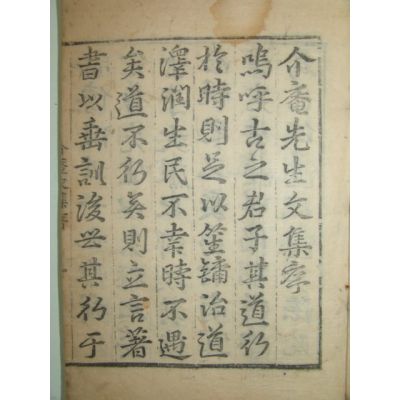 介庵先生文集序
嗚呼古之君子其道行
於時則足以笙鏞治道
澤潤生民不幸時不遇
矣道不行矣則立言著
書以垂訓後世其行于
介庵文集序